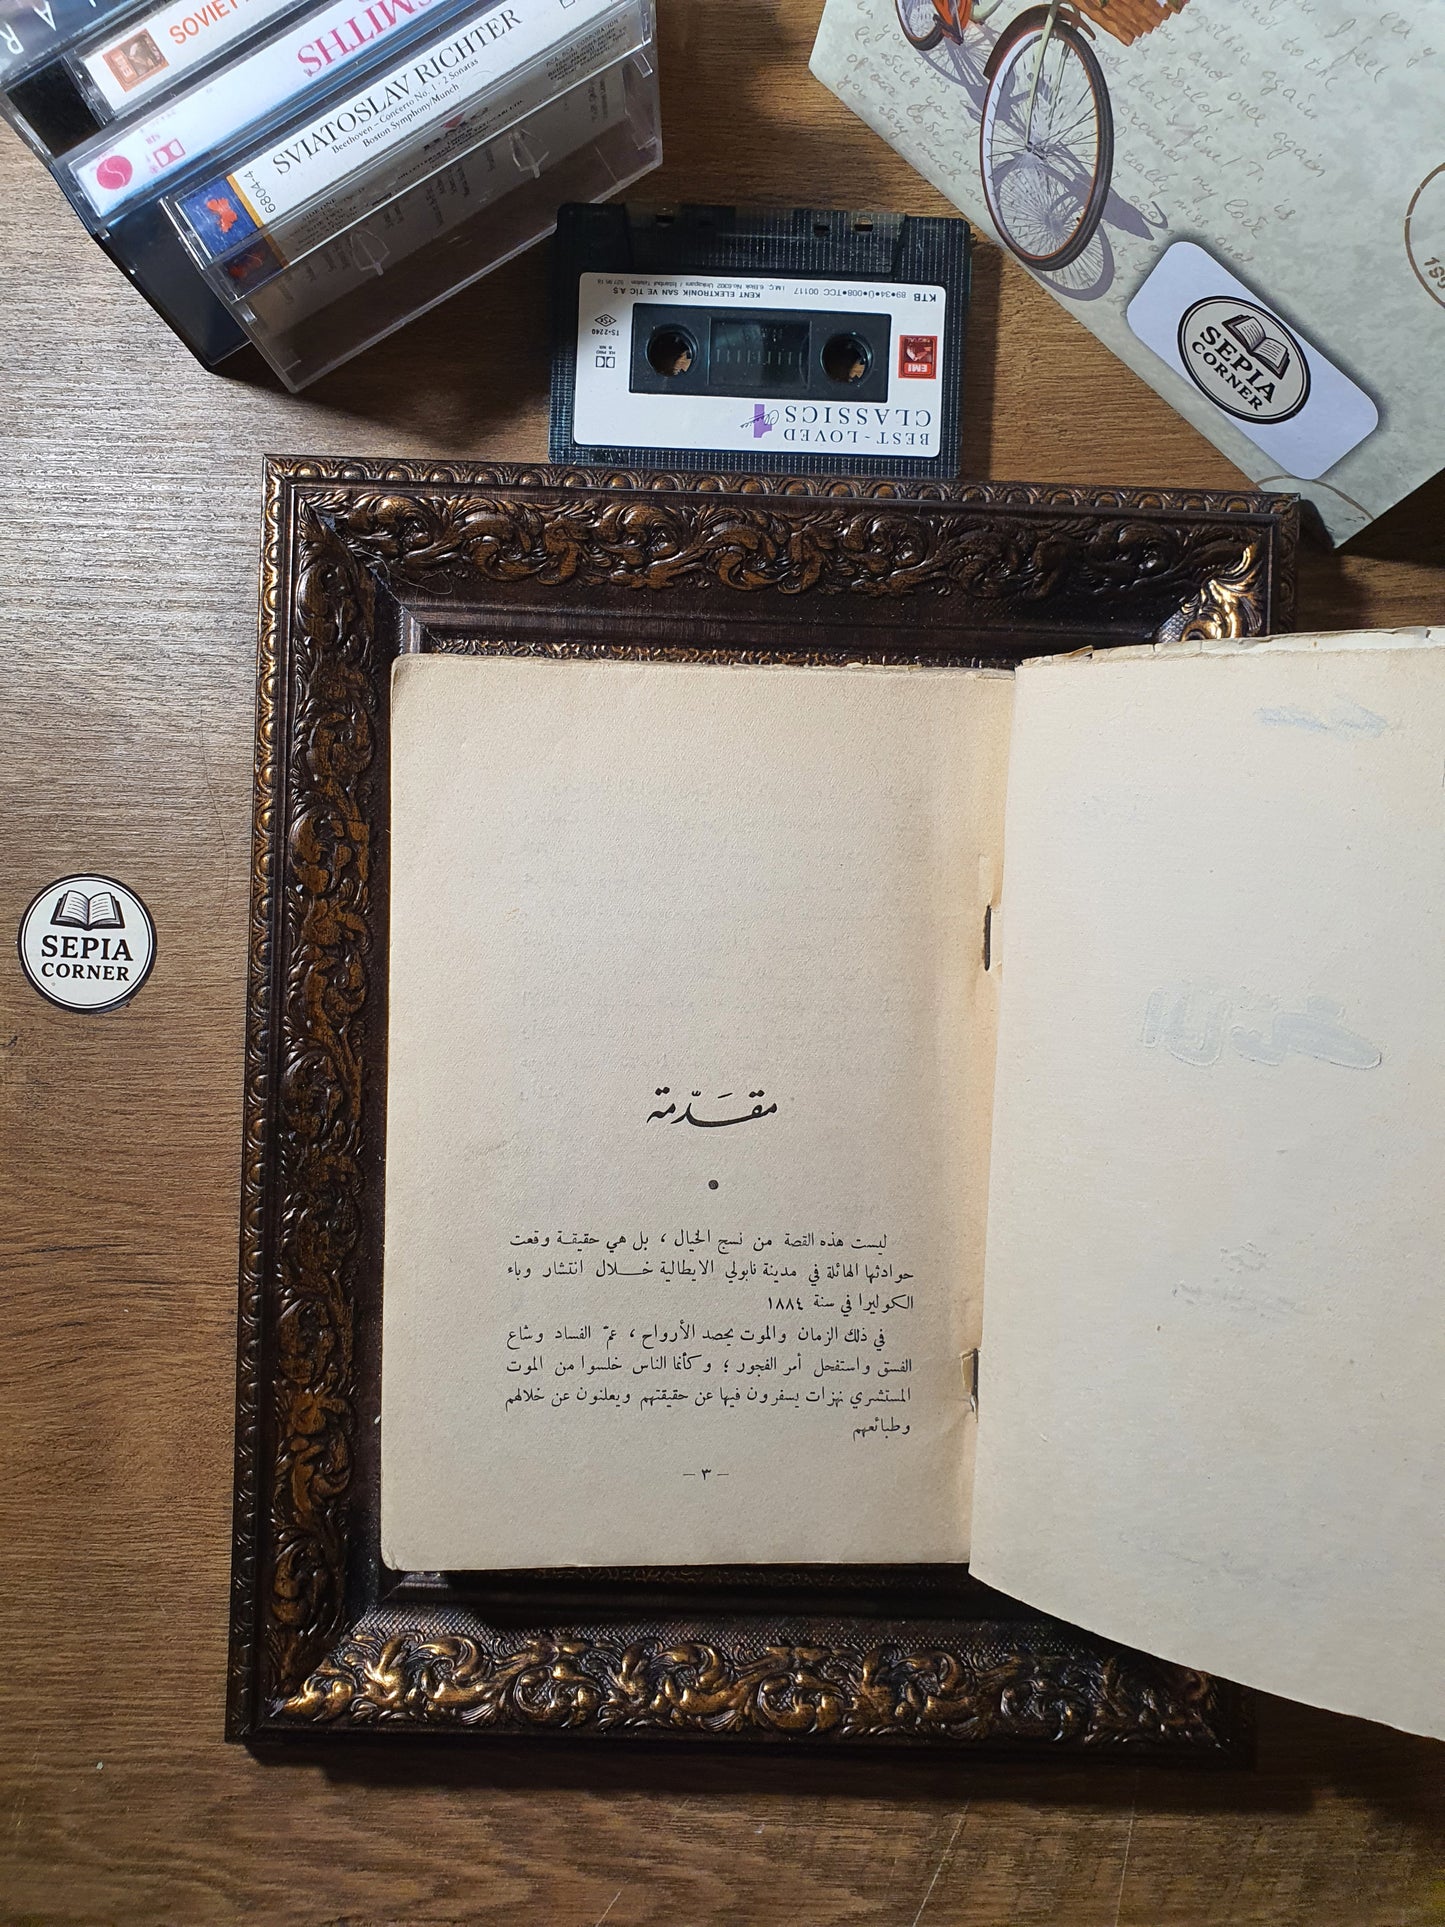 SOVIET
SMITHS
SVIATOSLAV RICHTER
Beethoven - Concerto No. 1 · 2 Sonatas
Boston Symphony/Munch
6804-4
KTB 89•34•Ü•008•TCC 00117
KENT ELEKTRONİK SAN VE TİC A.Ş
TS-2240
EMI
BEST-LOVED
CLASSICS 4
SEPIA
CORNER
SEPIA
CORNER
مقدّمة
•
ليست هذه القصة من نسج الخيال ، بل هي حقيقة وقعت
حوادثها الهائلة في مدينة نابولي الايطالية خلال انتشار وباء
الكوليرا في سنة ١٨٨٤
في ذلك الزمان والموت يحصد الأرواح ، عمّ الفساد وشاع
الفسق واستفحل أمر الفجور ؛ وكأنما الناس خلسوا من الموت
المستشري نهزات يسفرون فيها عن حقيقتهم ويعلنون عن خلالهم
وطبائعهم
– ٣ –